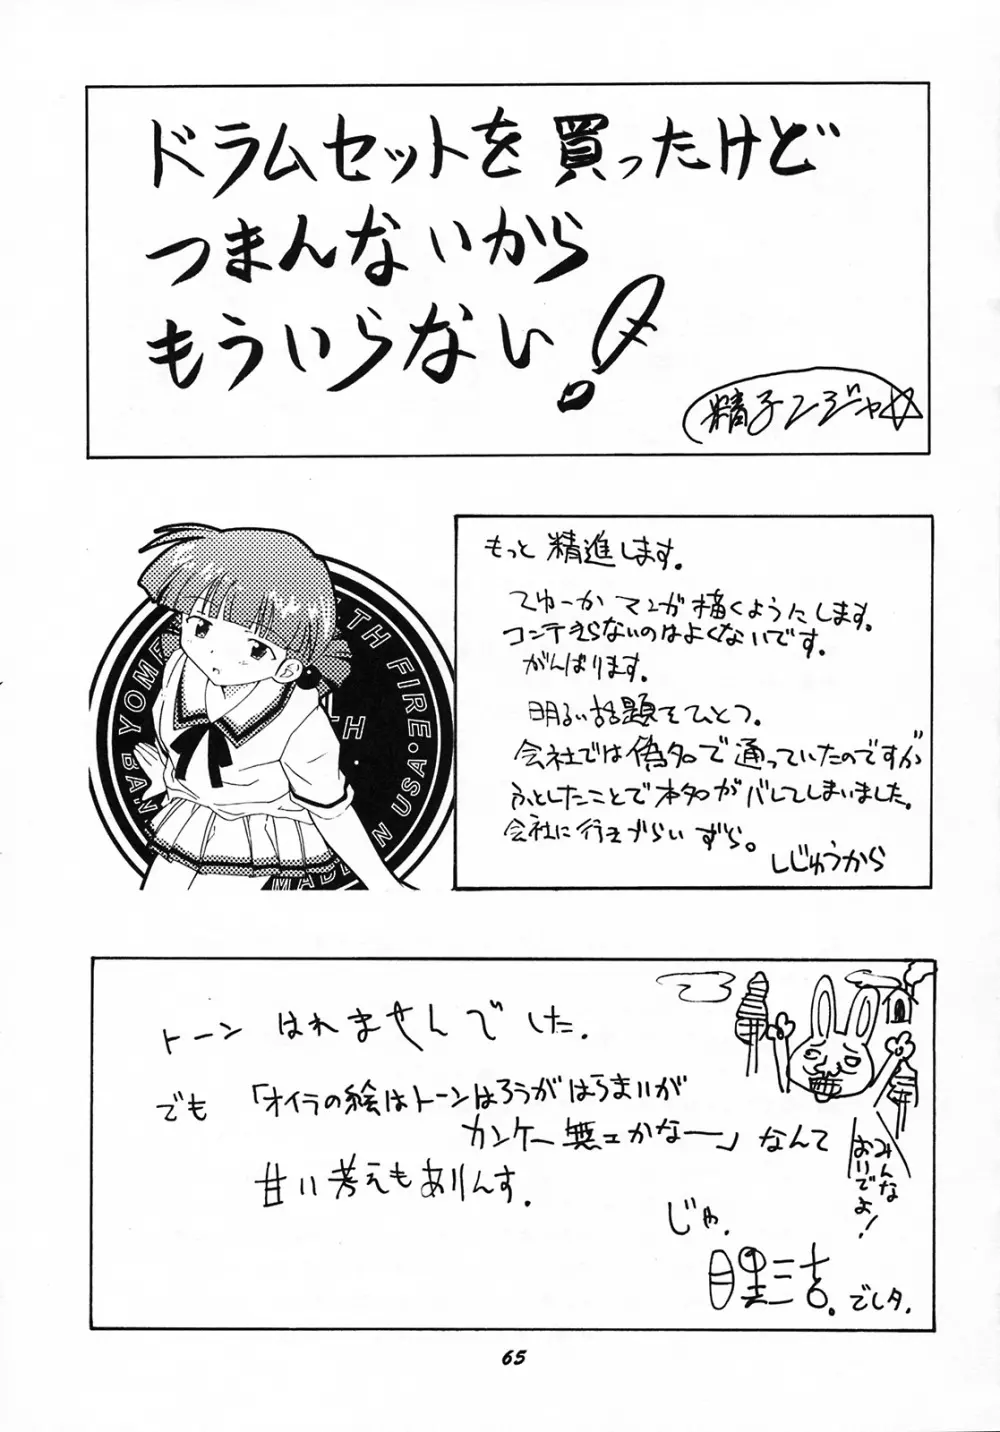 ドラムセットを買ったけど
つまんないから
もういらない!
精子ンジャ☆
もっと精進します。
てゆーかマンガ描くようにします。
コンテきらないのはよくないです。
がんばります。
明るい話題をひとつ。
会社では偽名で通っていたのですが
ふとしたことで本名がバレてしまいました。
会社に行きづらいずら。
しじゅうから
TH FIRE・
USA・
MADE
BAN
YOM
TH
トーン はれませんでした.
でも「オイラの絵はトーンはろうがはらまいが
カンケー無エかなー」なんて
甘い考えもありんす.
みんな
おいでよ!
じゃ.
三吉。でしタ.
65